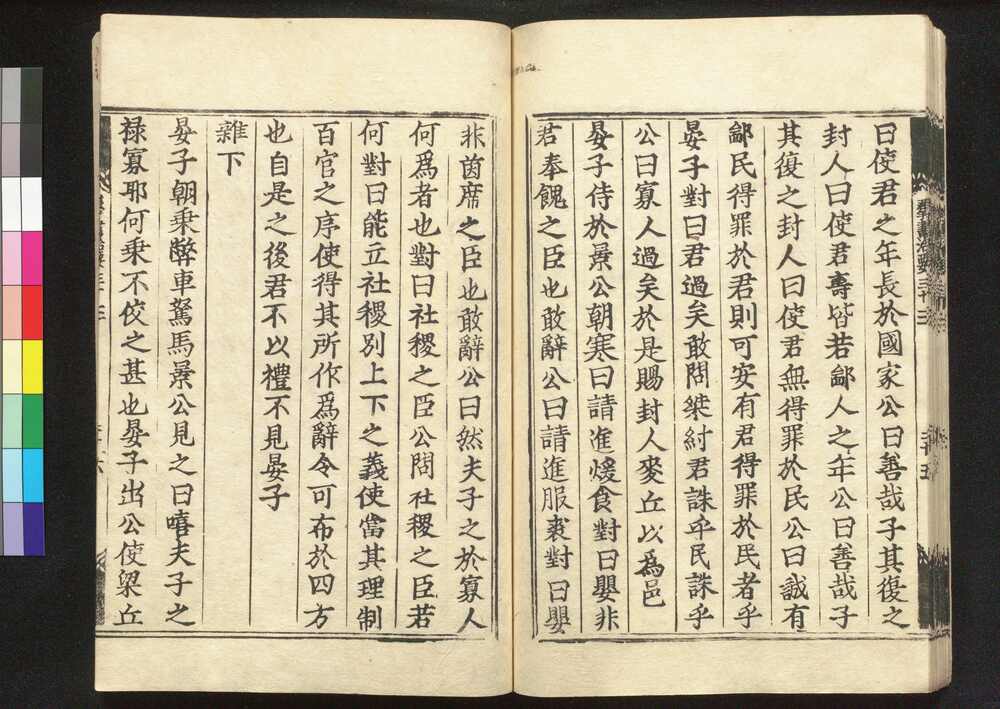 曰使君之年長於國家公曰善哉子其復之
封人曰使君壽皆若鄙人之年公曰善哉子
其復之封人曰使君無得罪於民公曰誠有
鄙民得罪於君則可安有君得罪於民者乎
晏子對曰君過矣敢問桀紂君誅乎民誅乎
公曰寡人過矣於是賜封人麥丘以為邑
晏子侍於景公朝寒曰請進煖食對曰嬰非
君奉餽之臣也敢辭公曰請進服裘對曰嬰
非茵席之臣也敢辭公曰然夫子之於寡人
何爲者也對曰社稷之臣公問社稷之臣若
何對曰能立社稷別上下之義使當其理制
百官之序使得其所作爲辭令可布於四方
也自是之後君不以禮不見晏子
雜下
晏子朝乘弊車駑馬景公見之曰嘻夫子之
祿寡耶何乘不佼之甚也晏子出公使梁丘
群書治要三十三
三十五